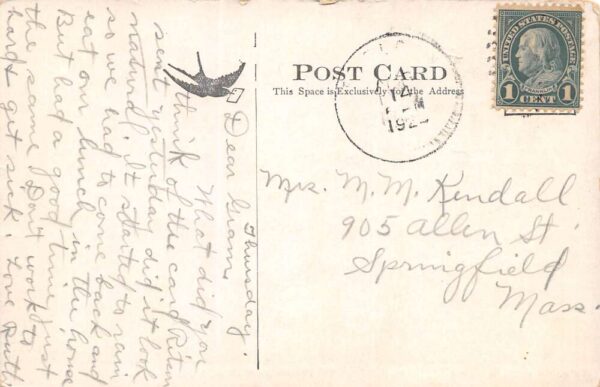 POST CARD
This Space is Exclusively for the Address
UNITED STATES POSTAGE
FRANKLIN
1 CENT 1
14
M
192
Mrs. M. M. Kendall
905 Allen St.
Springfield
Mass.
Thursday.
Dear Gram,
What did you
think of the card
sent yesterday did it look
natural. It started to rain
so we had to come back and
eat our lunch in the home
But had a good time just
the same. Don't work to
hard & get sick. Love Ruth